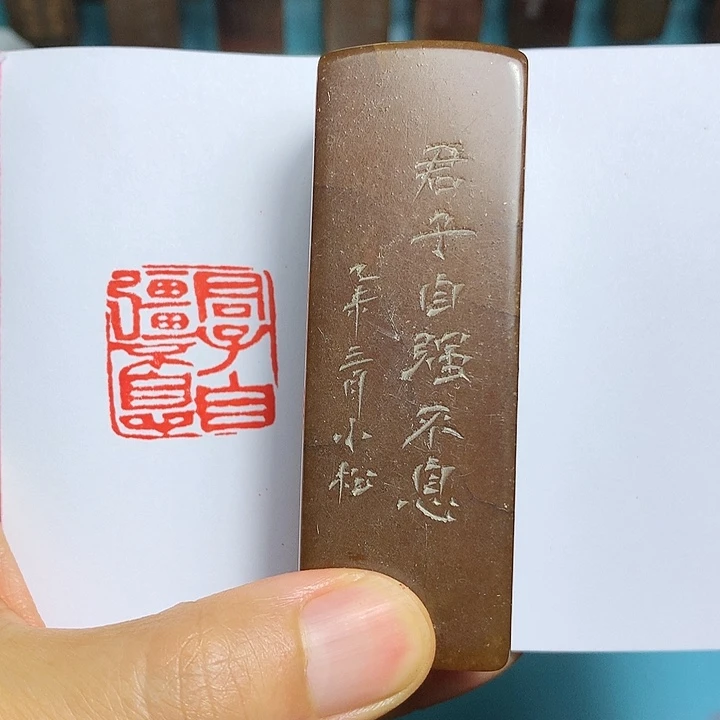 君子自强不息
乙未三月小松
君子自
彊不息